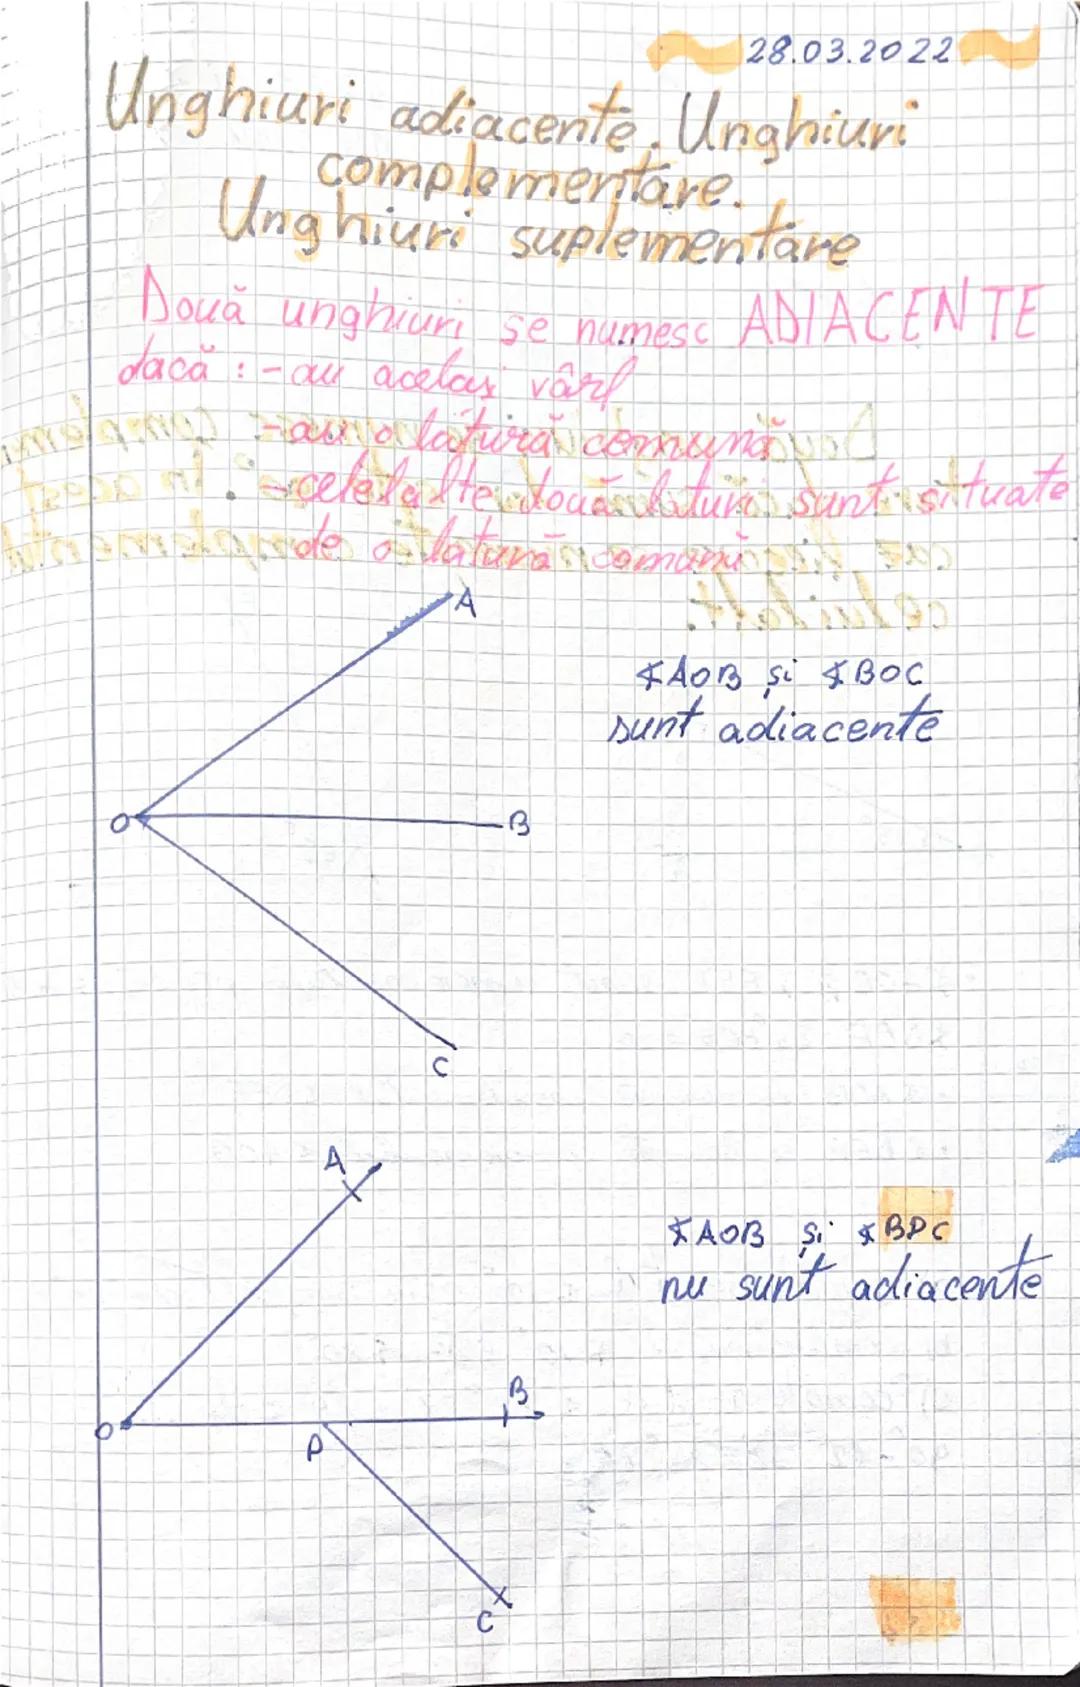 28.03.2022
Unghiuri adiacente. Unghiuri
complementare.
Unghiuri suplementare
Două unghiuri se numesc ADIACENTE
dacă : - au același vârf
- au o latură comună
- celelalte două laturi sunt situate
de o latură comună
A
∢AOB și ∢BOC
sunt adiacente
O
B
C
A
∢AOB și ∢BPC
nu sunt adiacente
B
O
P
C